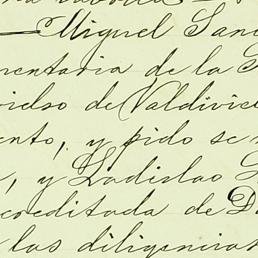 — Miguel San
mentaria de la S
de Valdivie
ento, y pido se
, y Ladislao
creditada de D
las diligencias